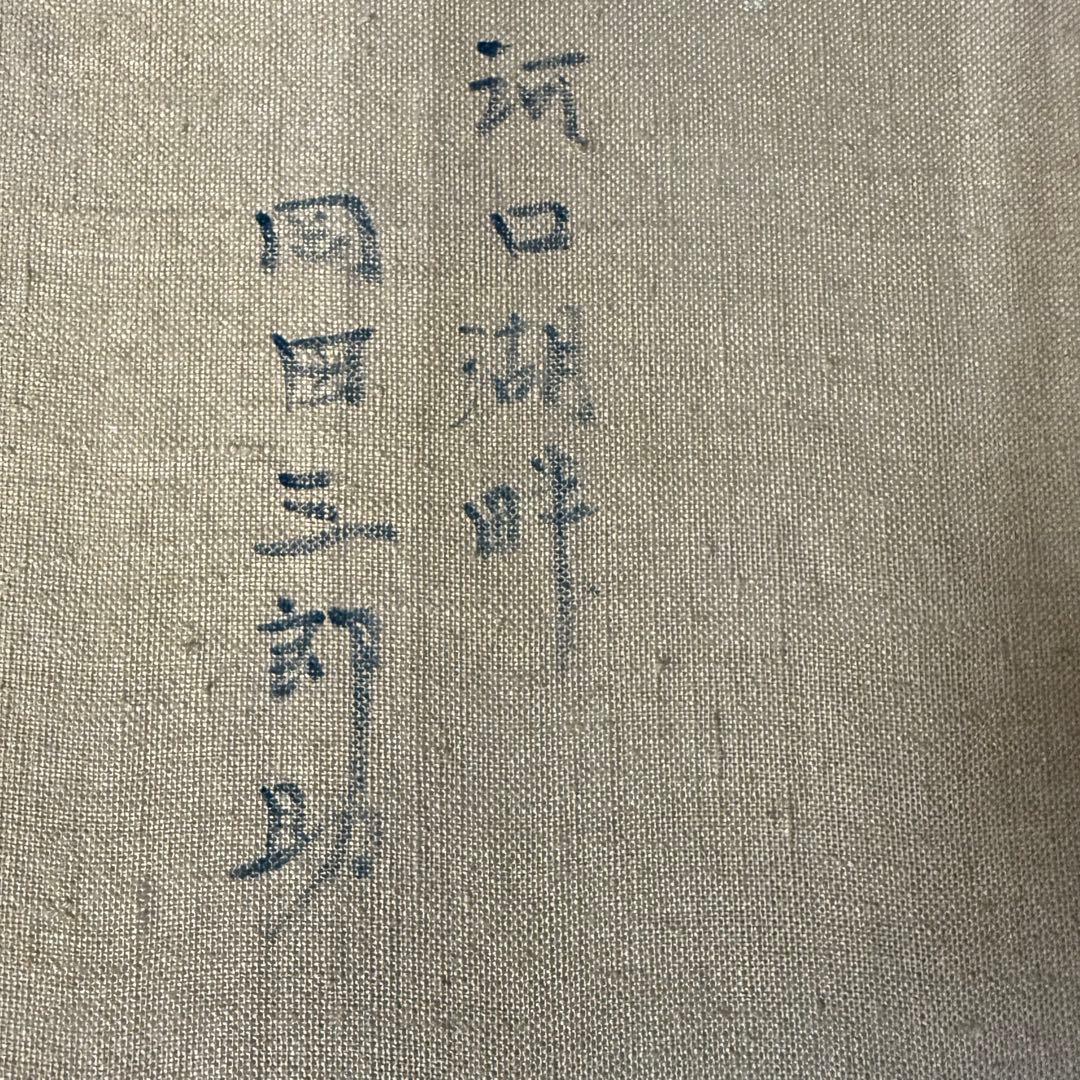 河口湖畔
岡田三郎助